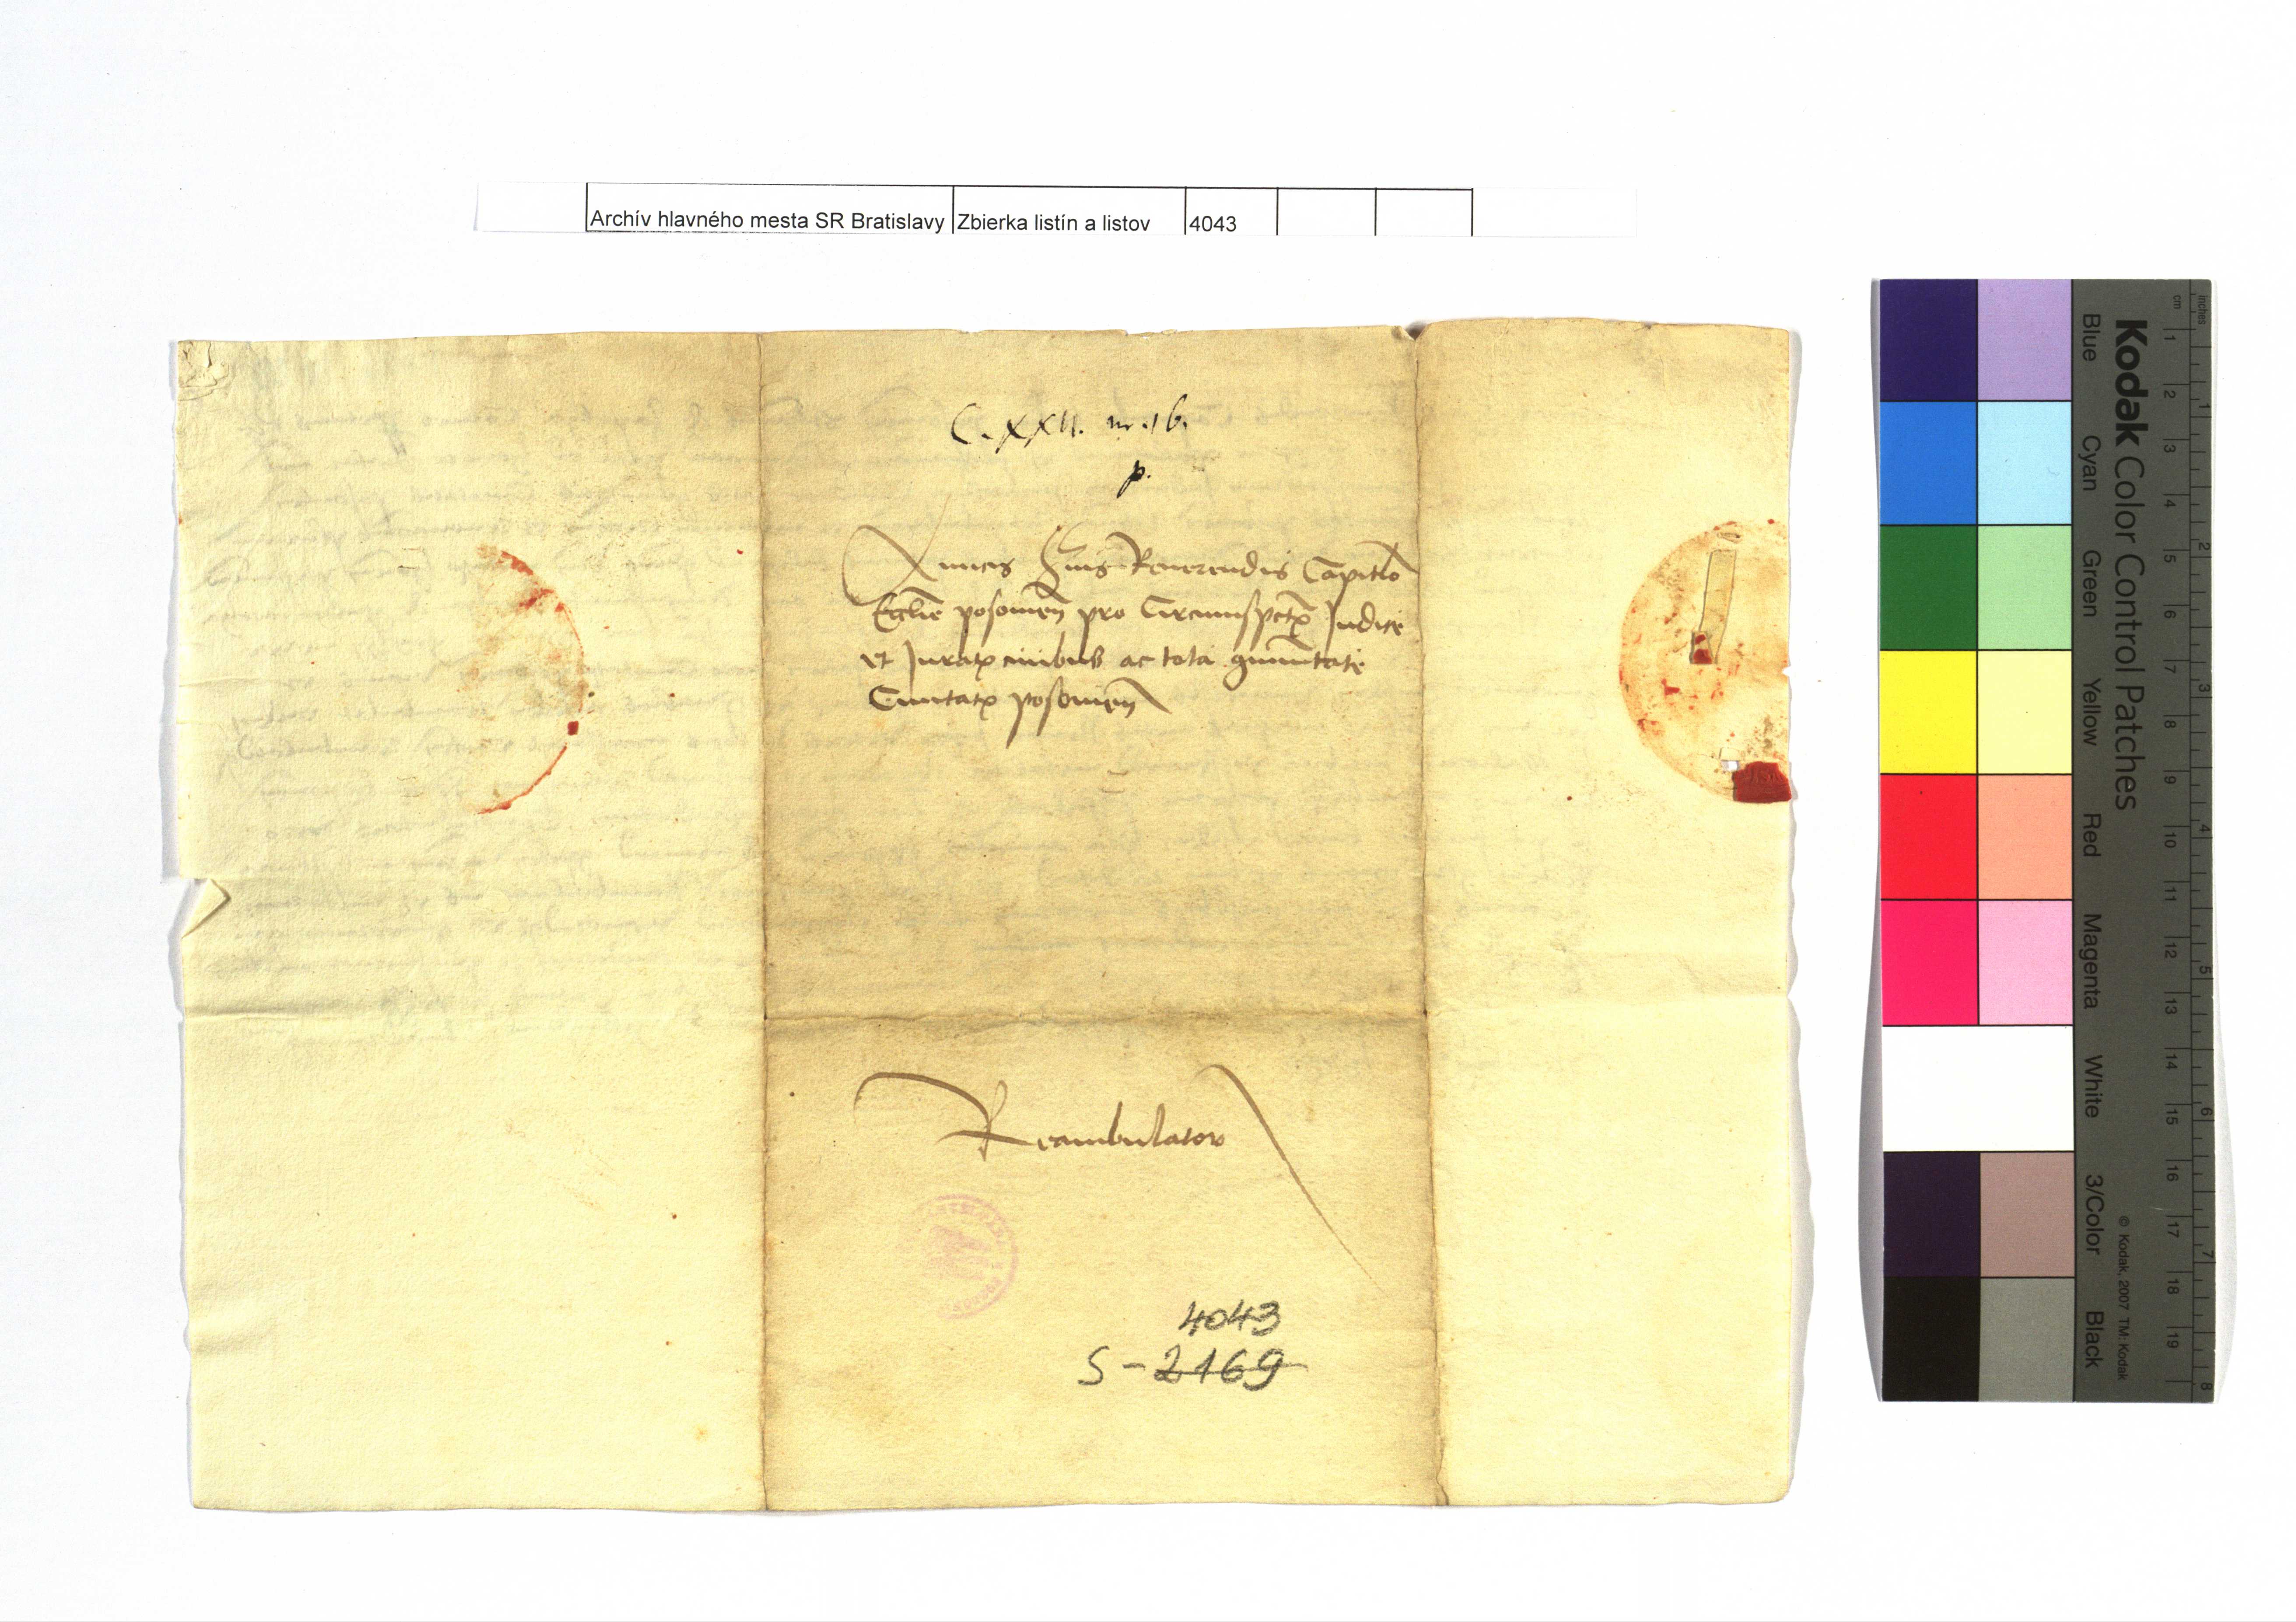 Archív hlavného mesta SR Bratislavy Zbierka listín a listov 4043
C. XXII. nr. 16.
p.
Amicis Suis Reverendis Capitlo
Ecclie posonien pro Circumspect Judice
et Jurat civibus ac tota
Civitat posonien
Reambulator
4043
S-2169
Kodak Color Control Patches
Blue Cyan Green Yellow Red Magenta White 3/Color Black
© Kodak, 2007 TM: Kodak
inches 1 2 3 4 5 6 7 8
cm 1 2 3 4 5 6 7 8 9 10 11 12 13 14 15 16 17 18 19